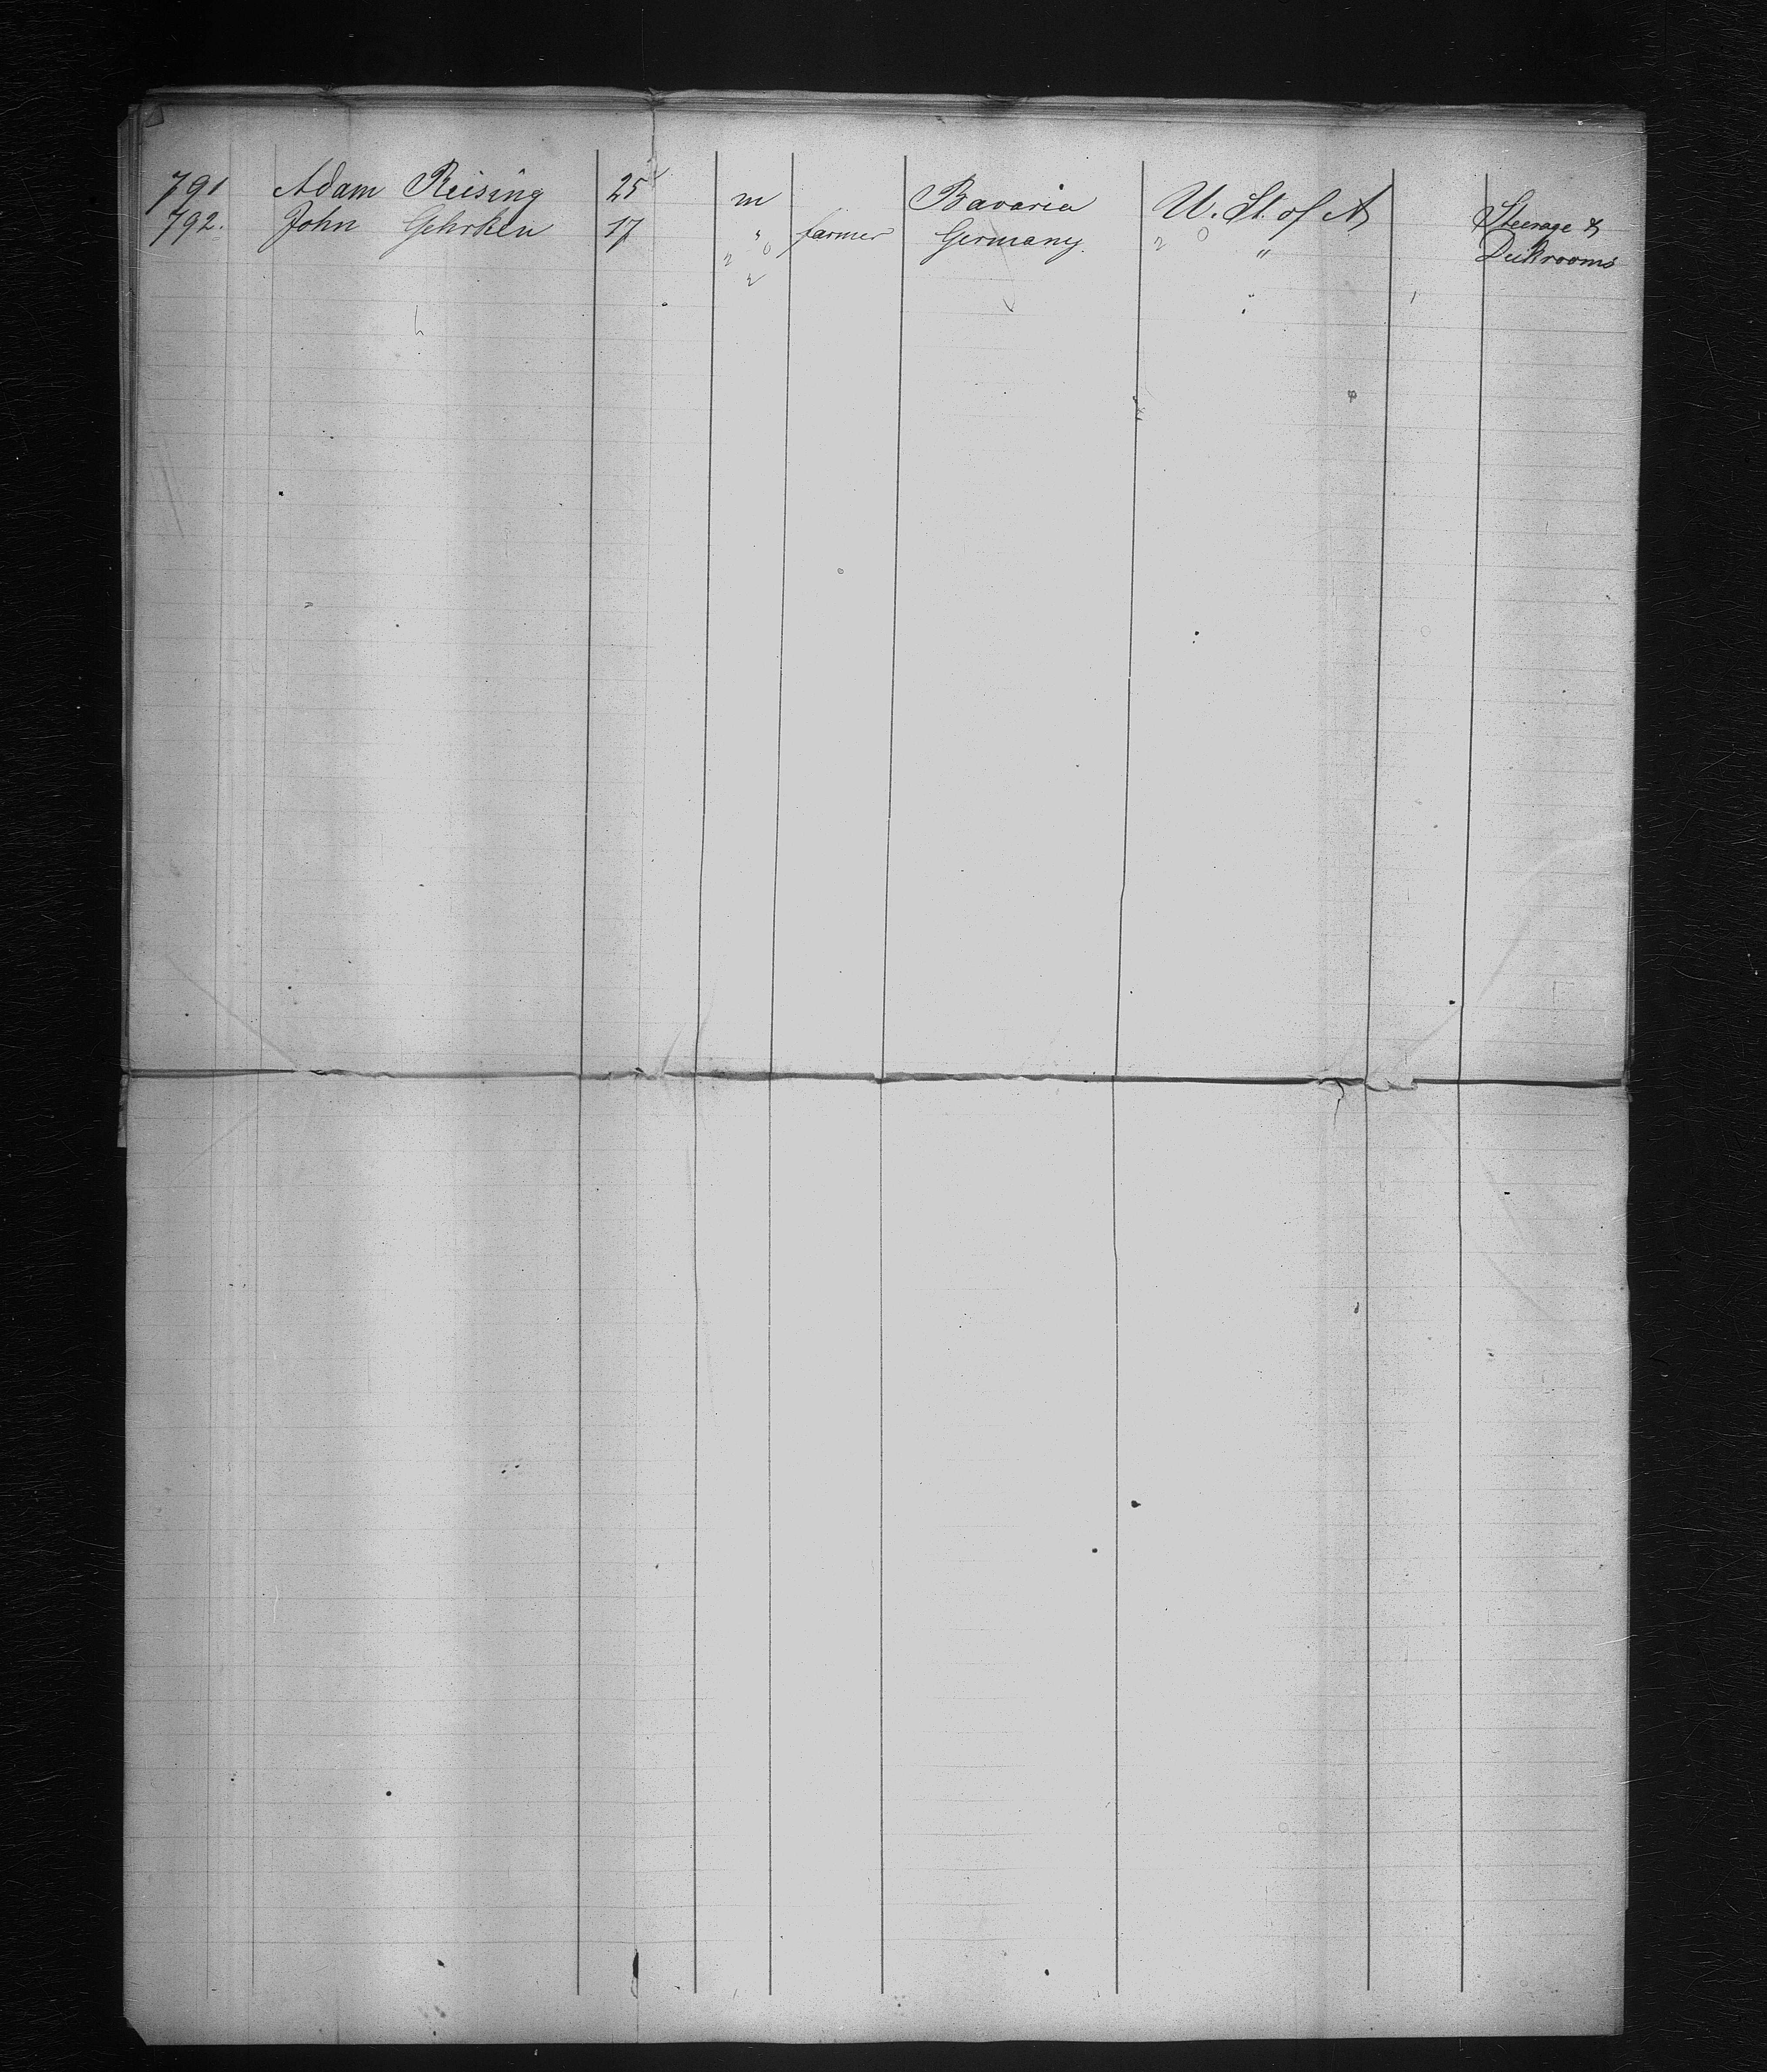 791 Adam Reising 25 m Bavaria U. St. of A Steerage &
792. John Gehrken 17 " farmer Germany " Deckrooms